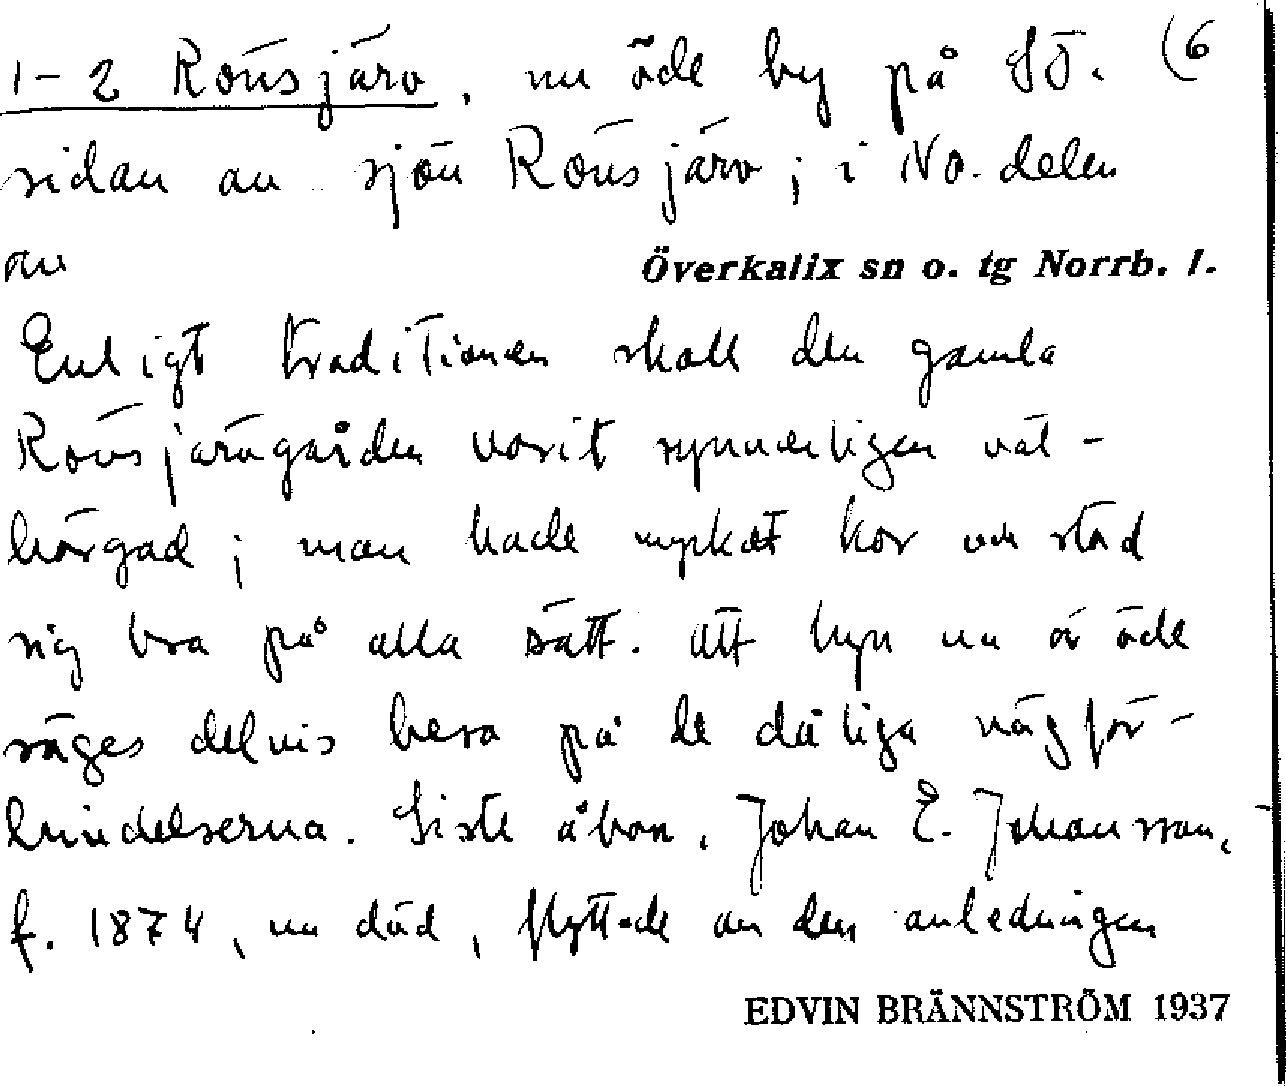 1-2 Rönsjärv, nu öde by på SÖ. (6
sidan av sjön Rönsjärv; i NO. delen
av Överkalix sn o. tg Norrb. l.
Enligt traditionen skall den gamla
Rönsjärvgården varit synnerligen väl-
bärgad; man hade mycket kor och stod
sig bra på alla sätt. Att byn nu är öde
säges delvis bero på de dåliga vägför-
bindelserna. Siste åbon, Johan E. Johansson,
f. 1874, nu död, flyttade av den anledningen
EDVIN BRÄNNSTRÖM 1937